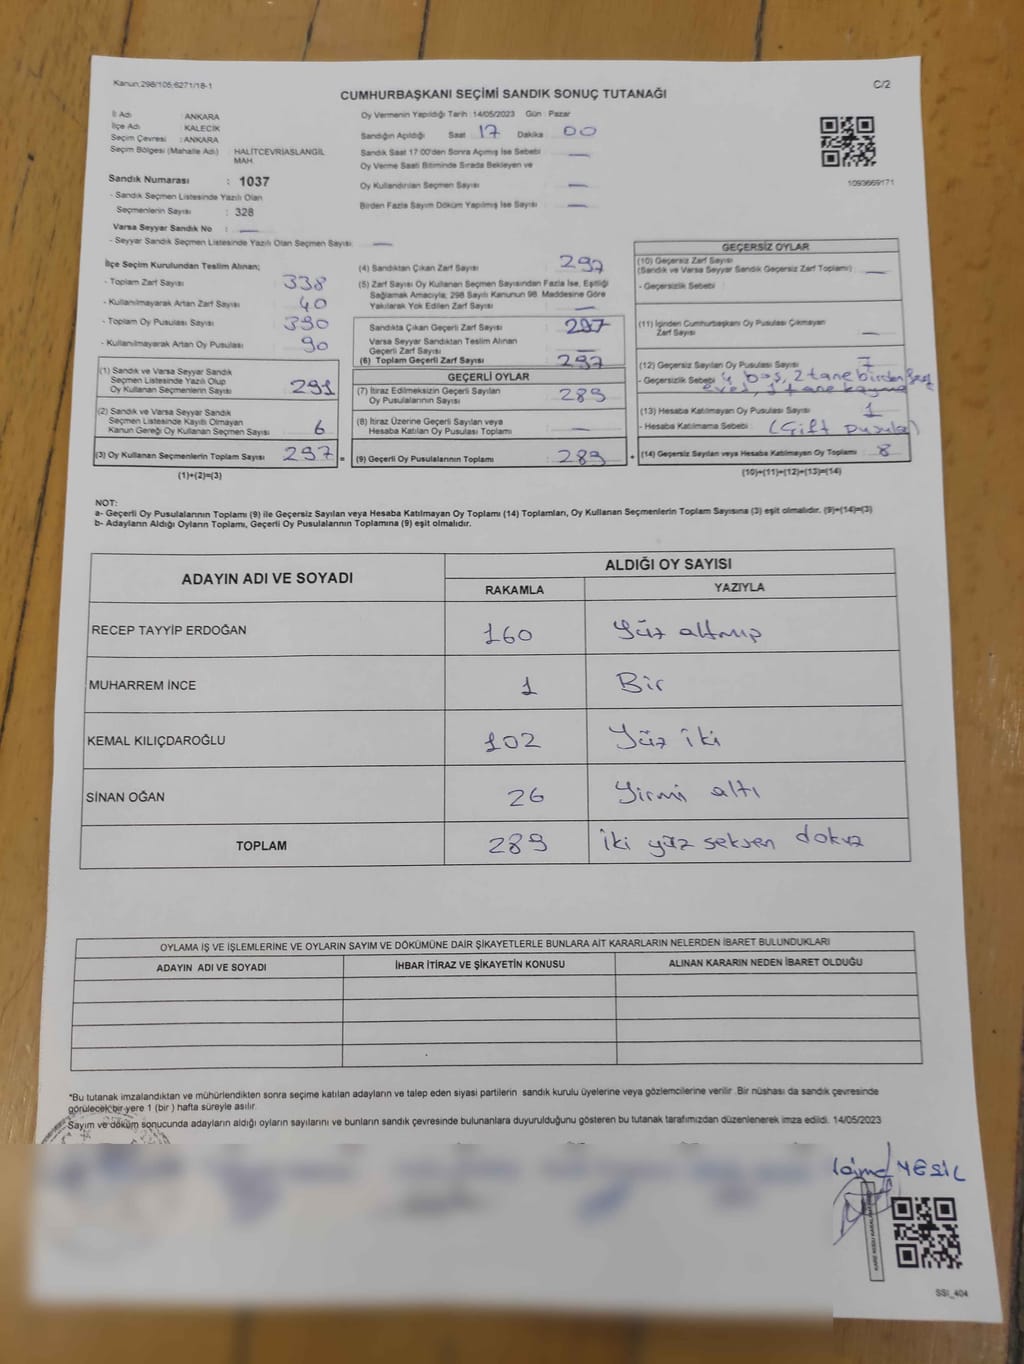 Kanun;298/105;6271/18-1
C/2
CUMHURBAŞKANI SEÇİMİ SANDIK SONUÇ TUTANAĞI
İl Adı : ANKARA
İlçe Adı : KALECİK
Seçim Çevresi : ANKARA
Seçim Bölgesi (Mahalle Adı) : HALİTCEVRİASLANGİL MAH.
Sandık Numarası : 1037
- Sandık Seçmen Listesinde Yazılı Olan
Seçmenlerin Sayısı : 328
Varsa Seyyar Sandık No : —
- Seyyar Sandık Seçmen Listesinde Yazılı Olan Seçmen Sayısı: —
Oy Vermenin Yapıldığı Tarih :14/05/2023 Gün : Pazar
Sandığın Açıldığı Saat : 17 Dakika : 00
Sandık Saat 17:00'den Sonra Açımış İse Sebebi : —
Oy Verme Saati Bitiminde Sırada Bekleyen ve
Oy Kullandırılan Seçmen Sayısı : —
Birden Fazla Sayım Döküm Yapılmış İse Sayısı : —
1093669171
İlçe Seçim Kurulundan Teslim Alınan;
- Toplam Zarf Sayısı : 338
- Kullanılmayarak Artan Zarf Sayısı : 40
- Toplam Oy Pusulası Sayısı : 390
- Kullanılmayarak Artan Oy Pusulası : 90
(1) Sandık ve Varsa Seyyar Sandık
Seçmen Listesinde Yazılı Olup
Oy Kullanan Seçmenlerin Sayısı : 291
(2) Sandık ve Varsa Seyyar Sandık
Seçmen Listesinde Kayıtlı Olmayan
Kanun Gereği Oy Kullanan Seçmen Sayısı : 6
(3) Oy Kullanan Seçmenlerin Toplam Sayısı : 297 =
(1)+(2)=(3)
(4) Sandıktan Çıkan Zarf Sayısı : 297
(5) Zarf Sayısı Oy Kullanan Seçmen Sayısından Fazla İse, Eşitliği
Sağlamak Amacıyla; 298 Sayılı Kanunun 98. Maddesine Göre
Yakılarak Yok Edilen Zarf Sayısı : —
Sandıkta Çıkan Geçerli Zarf Sayısı : 297
Varsa Seyyar Sandıktan Teslim Alınan
Geçerli Zarf Sayısı : —
(6) Toplam Geçerli Zarf Sayısı : 297
GEÇERLİ OYLAR
(7) İtiraz Edilmeksizin Geçerli Sayılan
Oy Pusulalarının Sayısı : 289
(8) İtiraz Üzerine Geçerli Sayılan veya
Hesaba Katılan Oy Pusulası Toplamı : —
(9) Geçerli Oy Pusulalarının Toplamı : 289 +
GEÇERSİZ OYLAR
(10) Geçersiz Zarf Sayısı
(Sandık ve Varsa Seyyar Sandık Geçersiz Zarf Toplamı) : —
- Geçersizlik Sebebi :
(11) İçinden Cumhurbaşkanı Oy Pusulası Çıkmayan
Zarf Sayısı : —
(12) Geçersiz Sayılan Oy Pusulası Sayısı : 7
- Geçersizlik Sebebi : 4 boş, 2 tane birden
evet, 1 tane
(13) Hesaba Katılmayan Oy Pusulası Sayısı : 1
- Hesaba Katılmama Sebebi : (Çift pusula)
(14) Geçersiz Sayılan veya Hesaba Katılmayan Oy Toplamı : 8
(10)+(11)+(12)+(13)=(14)
NOT:
a- Geçerli Oy Pusulalarının Toplamı (9) ile Geçersiz Sayılan veya Hesaba Katılmayan Oy Toplamı (14) Toplamları, Oy Kullanan Seçmenlerin Toplam Sayısına (3) eşit olmalıdır. (9)+(14)=(3)
b- Adayların Aldığı Oyların Toplamı, Geçerli Oy Pusulalarının Toplamına (9) eşit olmalıdır.
ADAYIN ADI VE SOYADI ALDIĞI OY SAYISI
RAKAMLA YAZIYLA
RECEP TAYYİP ERDOĞAN 160 Yüz altmış
MUHARREM İNCE 1 Bir
KEMAL KILIÇDAROĞLU 102 Yüz iki
SİNAN OĞAN 26 Yirmi altı
TOPLAM 289 iki yüz seksen dokuz
OYLAMA İŞ VE İŞLEMLERİNE VE OYLARIN SAYIM VE DÖKÜMÜNE DAİR ŞİKAYETLERLE BUNLARA AİT KARARLARIN NELERDEN İBARET BULUNDUKLARI
ADAYIN ADI VE SOYADI İHBAR İTİRAZ VE ŞİKAYETİN KONUSU ALINAN KARARIN NEDEN İBARET OLDUĞU
*Bu tutanak imzalandıktan ve mühürlendikten sonra seçime katılan adayların ve talep eden siyasi partilerin sandık kurulu üyelerine veya gözlemcilerine verilir. Bir nüshası da sandık çevresinde
görülecek bir yere 1 (bir ) hafta süreyle asılır.
Sayım ve döküm sonucunda adayların aldığı oyların sayılarını ve bunların sandık çevresinde bulunanlara duyurulduğunu gösteren bu tutanak tarafımızdan düzenlenerek imza edildi. 14/05/2023
YEŞİL
SSI_404